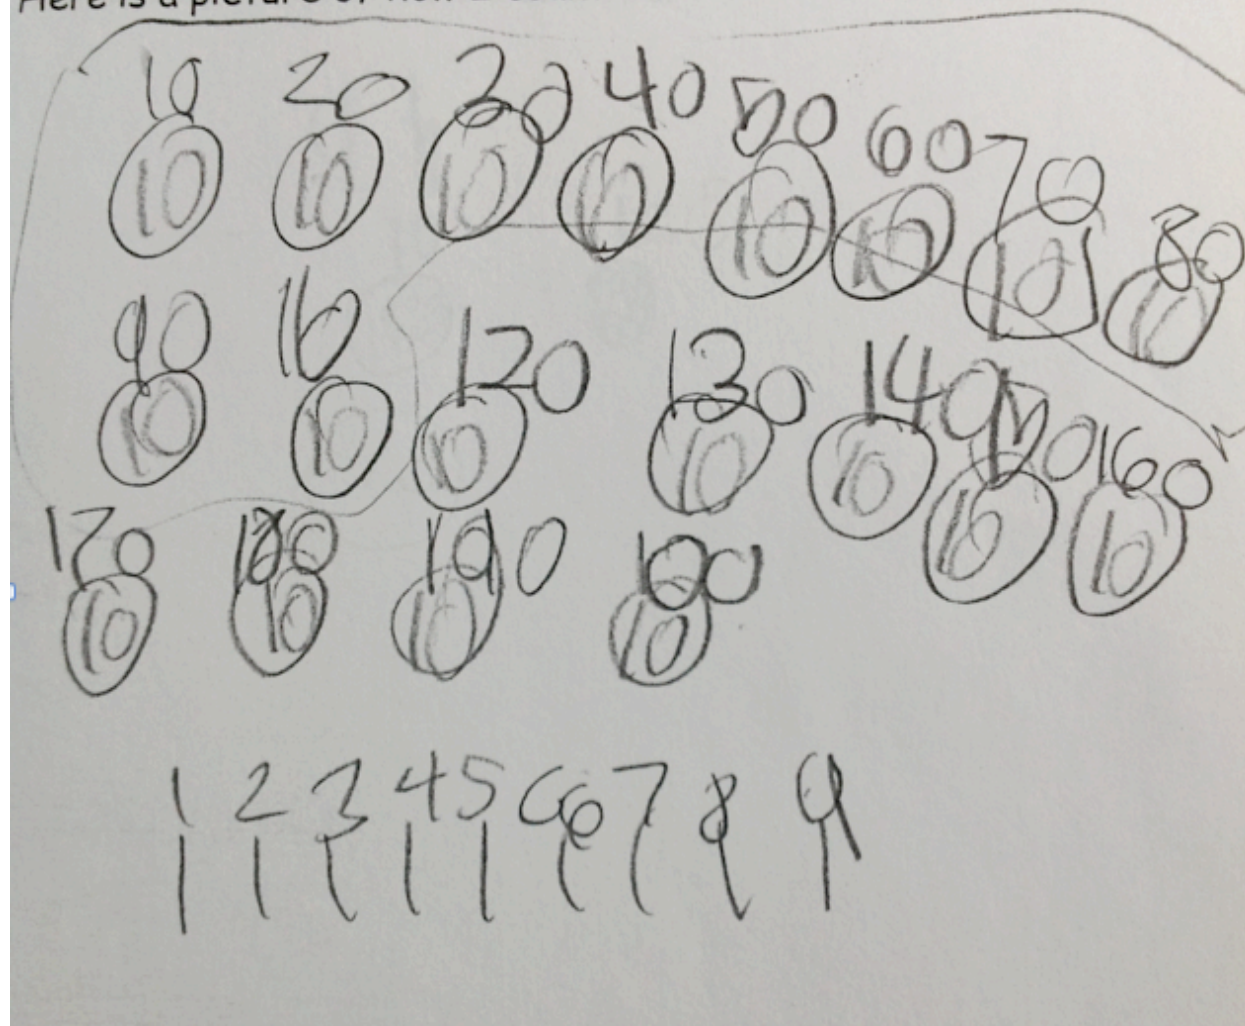 Here is a picture of how
10 20 30 40 50 60 70 80
10 10 10 10 10 10 10 10
90 10 120 130 140 150 160
10 10 10 10 10 10 10
170 180 190 100
10 10 10 10
1 2 3 4 5 6 7 8 9